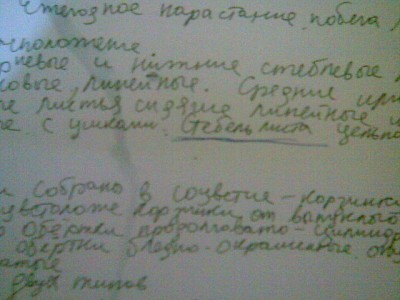 Ежегодное нарастание побега
сположение
рневые и нижние стеблевые
совые, линейные. Средние
ые листья сидячие линейные и
с ушками. Стебель листа цельно
собрано в соцветие - корзинки
цветоложе корзинки от выпуклого
обертки продолговато-
обертки бледно-окрашенные,
двух типов